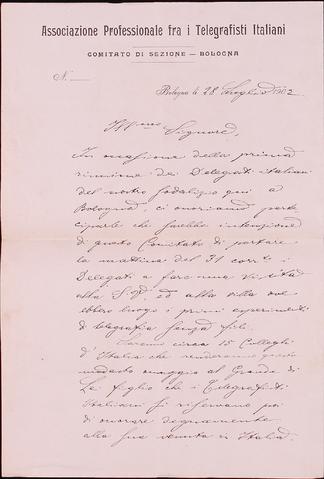 Associazione Professionale fra i Telegrafisti Italiani
COMITATO DI SEZIONE — BOLOGNA
N.
Bologna li 28 Luglio 1902
Ill.mo Signore,
In occasione della prima
riunione dei Delegati italiani
del nostro sodalizio qui a
Bologna, ci onoriamo parte-
ciparle che sarebbe intenzione
di questo Comitato di portare
la mattina del 31 corr.te i
Delegati a fare una visita
alla S.V. ed alla villa ove
ebbero luogo i primi esperimenti
di telegrafia senza fili.
Saremo circa 15 Colleghi
d'Italia che renderanno questo
modesto omaggio al Grande di
Lei figlio che i Telegrafisti
Italiani si riservano poi
di onorare degnamente
alla sua venuta in Italia.